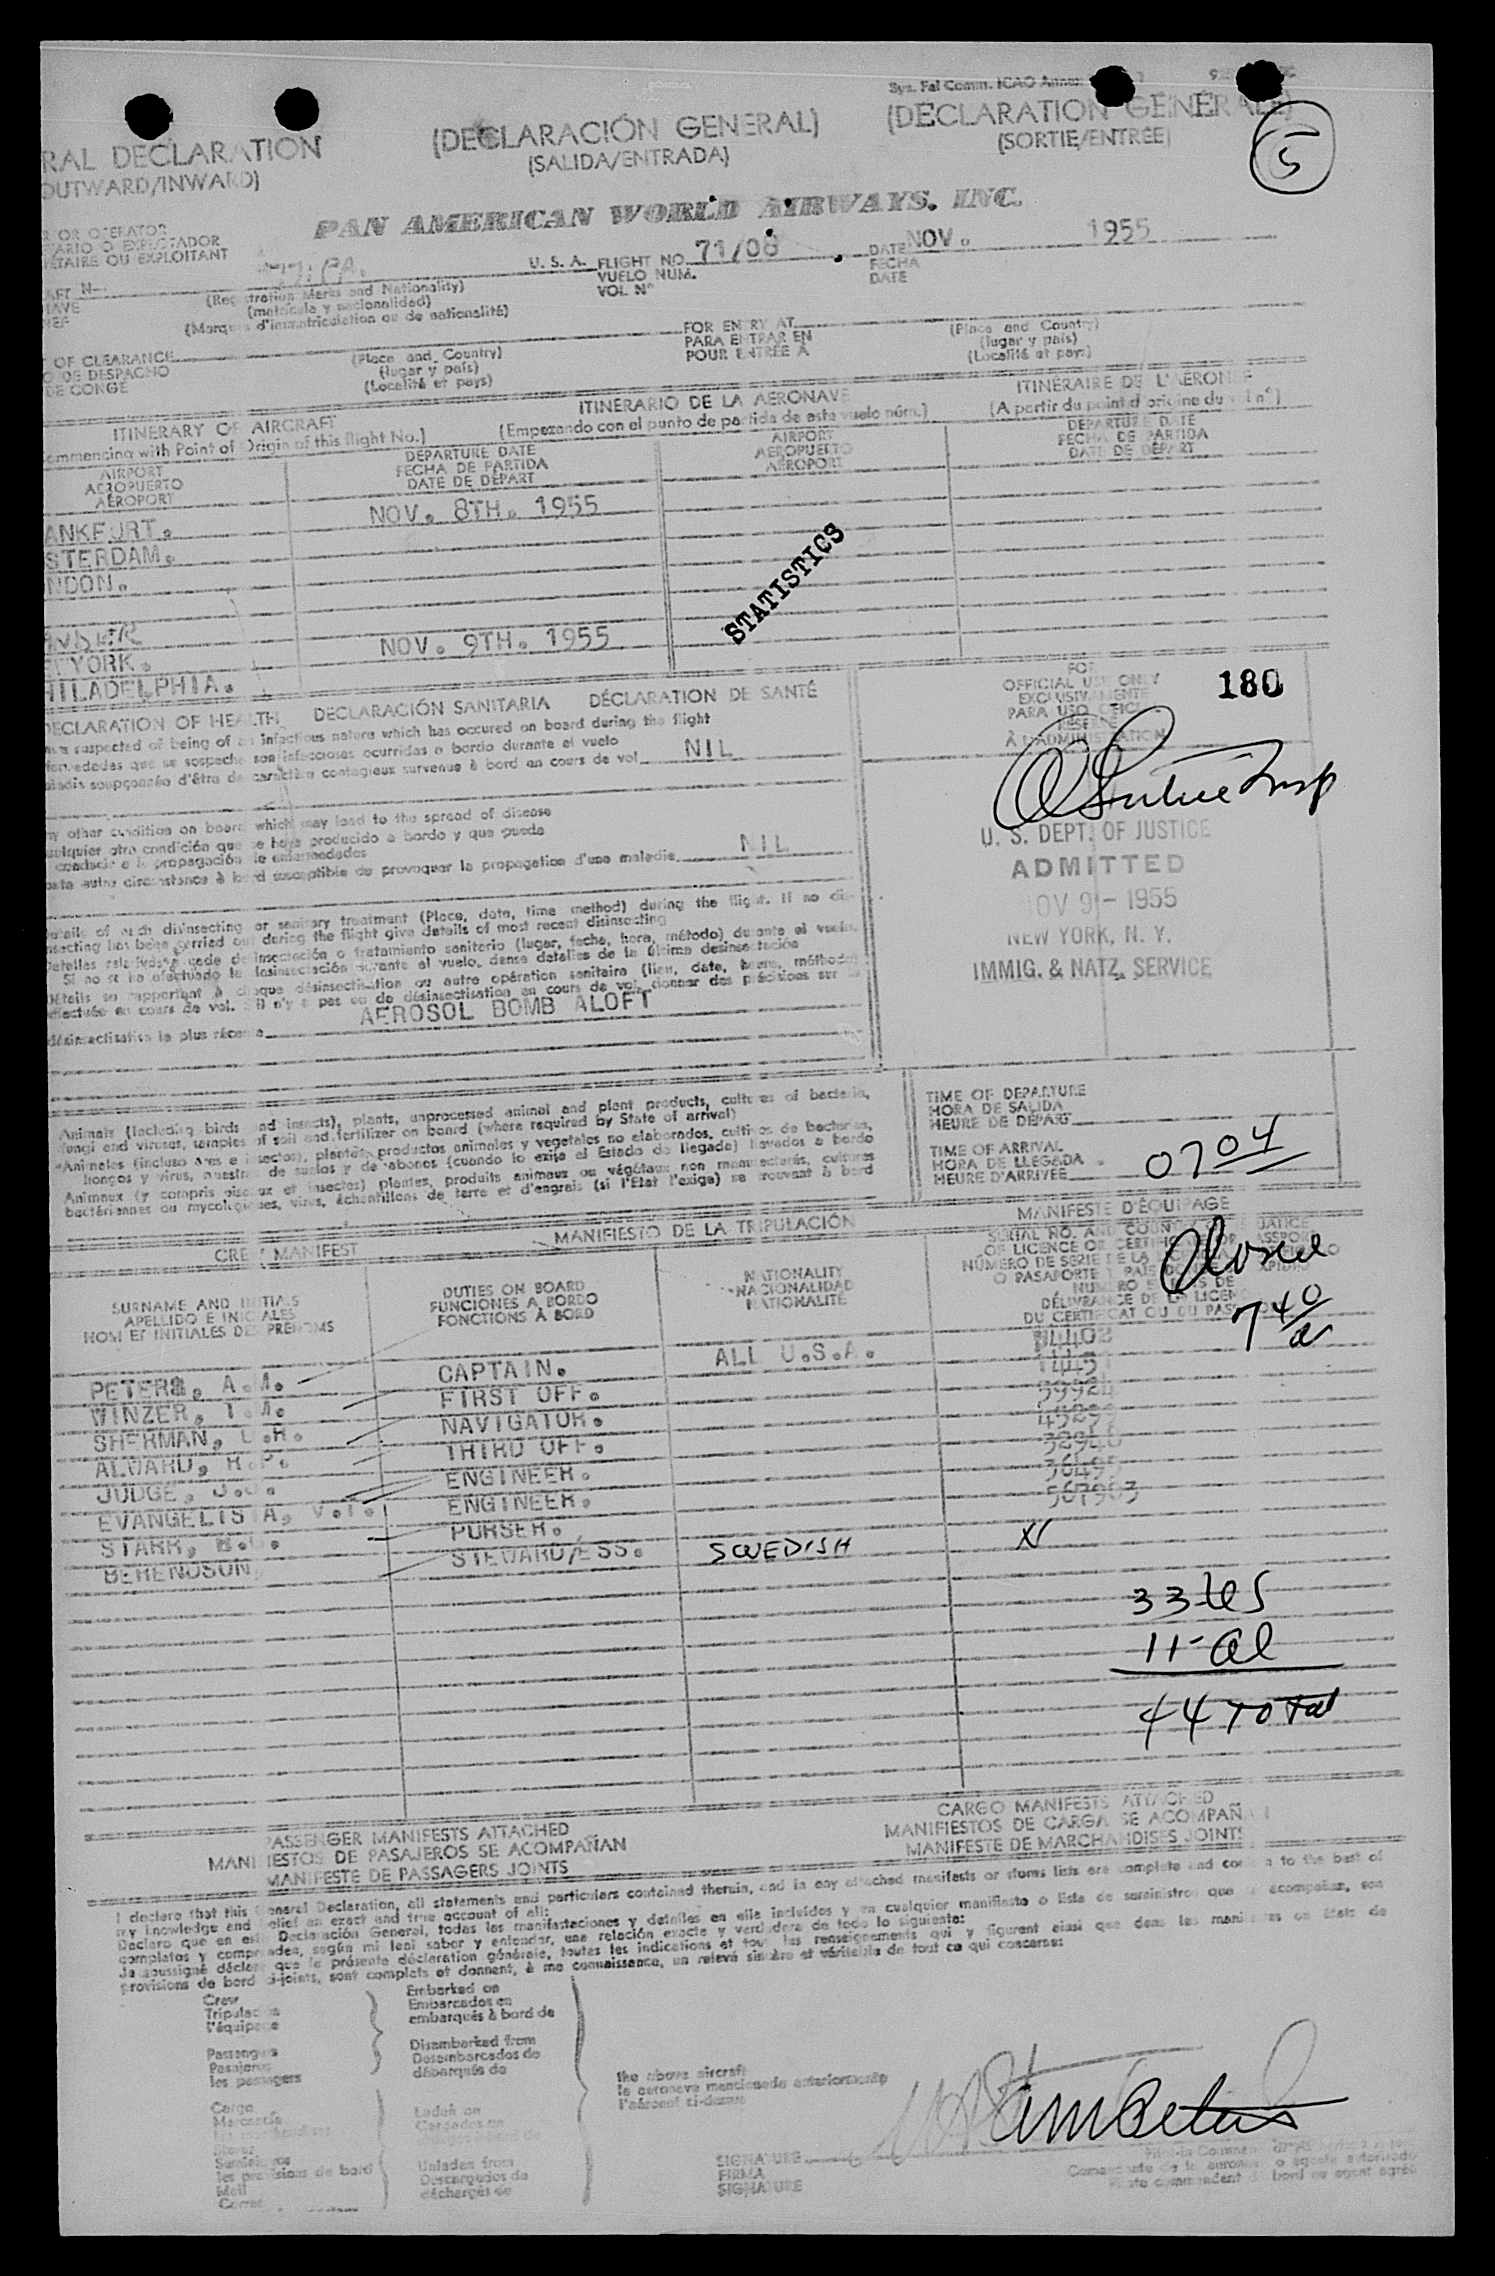 Sys. Fal Comm. ICAO Annex
RAL DECLARATION
(DECLARACIÓN GENERAL)
(DECLARATION GÉNÉRALE)
OUTWARD/INWARD)
(SALIDA/ENTRADA)
(SORTIE/ENTRÉE)
5
PAN AMERICAN WORLD AIRWAYS, INC.
OR OPERATOR
ARIO O EXPLOTADOR
ÉTAIRE OU EXPLOITANT
U. S. A. FLIGHT NO. 71/08
VUELO NUM.
VOL Nº
DATE NOV. 1955
FECHA
DATE
(Registration Marks and Nationality)
(matrícula y nacionalidad)
(Marques d'immatriculation ou de nationalité)
OF CLEARANCE
O DE DESPACHO
DE CONGÉ
(Place and Country)
(lugar y país)
(Localité et pays)
FOR ENTRY AT
PARA ENTRAR EN
POUR ENTRÉE À
(Place and Country)
(lugar y país)
(Localité et pays)
ITINERARY OF AIRCRAFT
ITINERARIO DE LA AERONAVE
ITINÉRAIRE DE L'AÉRONEF
ommencing with Point of Origin of this flight No.)
(Empezando con el punto de partida de este vuelo núm.)
(A partir du point d'origine du vol nº)
AIRPORT
AEROPUERTO
AÉROPORT
DEPARTURE DATE
FECHA DE PARTIDA
DATE DE DÉPART
AIRPORT
AEROPUERTO
AÉROPORT
DEPARTURE DATE
FECHA DE PARTIDA
DATE DE DÉPART
ANKFURT. NOV. 8TH. 1955
STERDAM.
NDON.
STATISTICS
NOV. 9TH. 1955
YORK.
HILADELPHIA.
DECLARATION OF HEALTH DECLARACIÓN SANITARIA DÉCLARATION DE SANTÉ
suspected of being of an infectious nature which has occured on board during the flight
que se sospecha son infecciosas ocurridas a bordo durante el vuelo
soupçonnée d'être de caractère contagieux survenue à bord en cours de vol NIL
FOR
OFFICIAL USE ONLY
EXCLUSIVAMENTE
PARA USO OFICIAL
RÉSERVÉ
À L'ADMINISTRATION
180
y other condition on board which may lead to the spread of disease
ualquier otra condición que se haya producido a bordo y que pueda
conducir a la propagación de enfermedades
autre circonstance à bord susceptible de provoquer la propagation d'une maladie NIL
U. S. DEPT. OF JUSTICE
ADMITTED
NOV 9 - 1955
NEW YORK, N. Y.
IMMIG. & NATZ. SERVICE
Details of each disinsecting or sanitary treatment (Place, date, time method) during the flight. If no dis-
insecting has been carried out during the flight give details of most recent disinsecting
Detalles relativos a cada desinsectación o tratamiento sanitario (lugar, fecha, hora, método) durante el vuelo.
Si no se ha efectuado la desinsectación durante el vuelo, dense detalles de la última desinsectación
Détails se rapportant à chaque désinsectisation ou autre opération sanitaire (lieu, date, heure, méthode)
effectuée en cours de vol. S'il n'y a pas eu de désinsectisation en cours de vol, donner des précisions sur la
désinsectisation la plus récente AEROSOL BOMB ALOFT
Animals (including birds and insects), plants, unprocessed animal and plant products, cultures of bacteria,
fungi and viruses, samples of soil and fertilizer on board (where required by State of arrival)
Animales (incluso aves e insectos), plantas, productos animales y vegetales no elaborados, cultivos de bacterias,
hongos y virus, muestras de suelos y de abonos (cuando lo exija el Estado de llegada) llevados a bordo
Animaux (y compris oiseaux et insectes) plantes, produits animaux ou végétaux non manufacturés, cultures
bactériennes ou mycologiques, virus, échantillons de terre et d'engrais (si l'État l'exige) se trouvant à bord
TIME OF DEPARTURE
HORA DE SALIDA
HEURE DE DÉPART
TIME OF ARRIVAL
HORA DE LLEGADA
HEURE D'ARRIVÉE 0704
CREW MANIFEST
MANIFIESTO DE LA TRIPULACIÓN
MANIFESTE D'ÉQUIPAGE
SURNAME AND INITIALS
APELLIDO E INICIALES
NOM ET INITIALES DES PRÉNOMS
DUTIES ON BOARD
FUNCIONES A BORDO
FONCTIONS À BORD
NATIONALITY
NACIONALIDAD
NATIONALITÉ
Closed
740
a
PETERS, A.M. CAPTAIN. ALL U.S.A.
WINZER, FIRST OFF.
SHERMAN, NAVIGATOR.
ALWARD, R.P. THIRD OFF.
JUDGE, ENGINEER.
EVANGELISTA, V.T. ENGINEER.
STARR, PURSER.
STEWARD/ESS. SWEDISH
33 US
11-al
44 Total
PASSENGER MANIFESTS ATTACHED
MANIFIESTOS DE PASAJEROS SE ACOMPAÑAN
MANIFESTE DE PASSAGERS JOINTS
CARGO MANIFESTS ATTACHED
MANIFIESTOS DE CARGA SE ACOMPAÑAN
MANIFESTE DE MARCHANDISES JOINTS
I declare that this General Declaration, all statements and particulars contained therein, and in any attached manifests or stores lists are complete and contain to the best of
my knowledge and belief an exact and true account of all:
Declaro que en esta Declaración General, todas las manifestaciones y detalles en ella incluídos y en cualquier manifiesto o lista de suministros que se acompañan, son
completos y comprenden, según mi leal saber y entender, una relación exacta y verdadera de todo lo siguiente:
Je soussigné déclare que la présente déclaration générale, toutes les indications et tous les renseignements qui y figurent ainsi que dans les manifestes ou états de
provisions de bord ci-joints, sont complets et donnent, à ma connaissance, un relevé sincère et véritable de tout ce qui concerne:
Crew
Tripulación
l'équipage
Embarked on
Embarcados en
embarqués à bord de
Passengers
Pasajeros
les passagers
Disembarked from
Desembarcados de
débarqués de
the above aircraft
la aeronave mencionada anteriormente
l'aéronef ci-dessus
Cargo
Mercancía
Laden on
Cargados en
Stores
Suministros
les provisions de bord
Mail
Correo
Unladen from
Descargados de
déchargés de
SIGNATURE
FIRMA
SIGNATURE